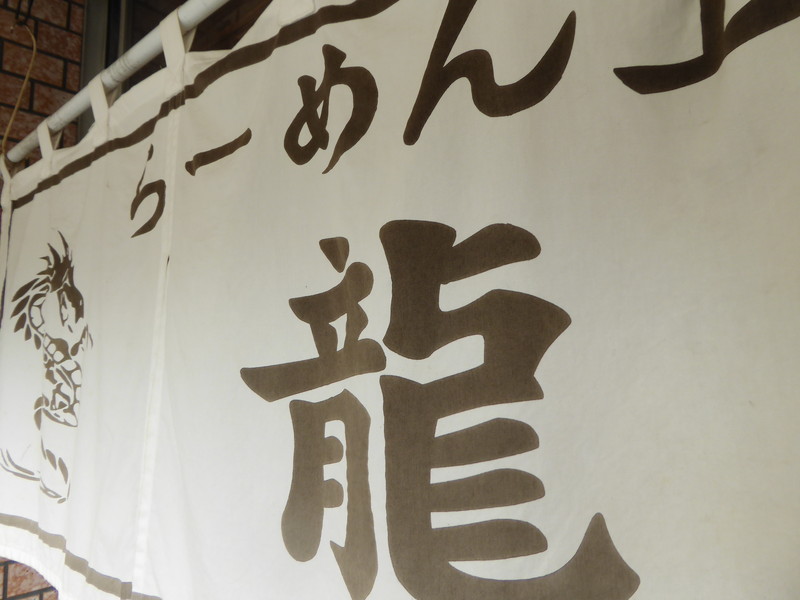 らーめん
龍